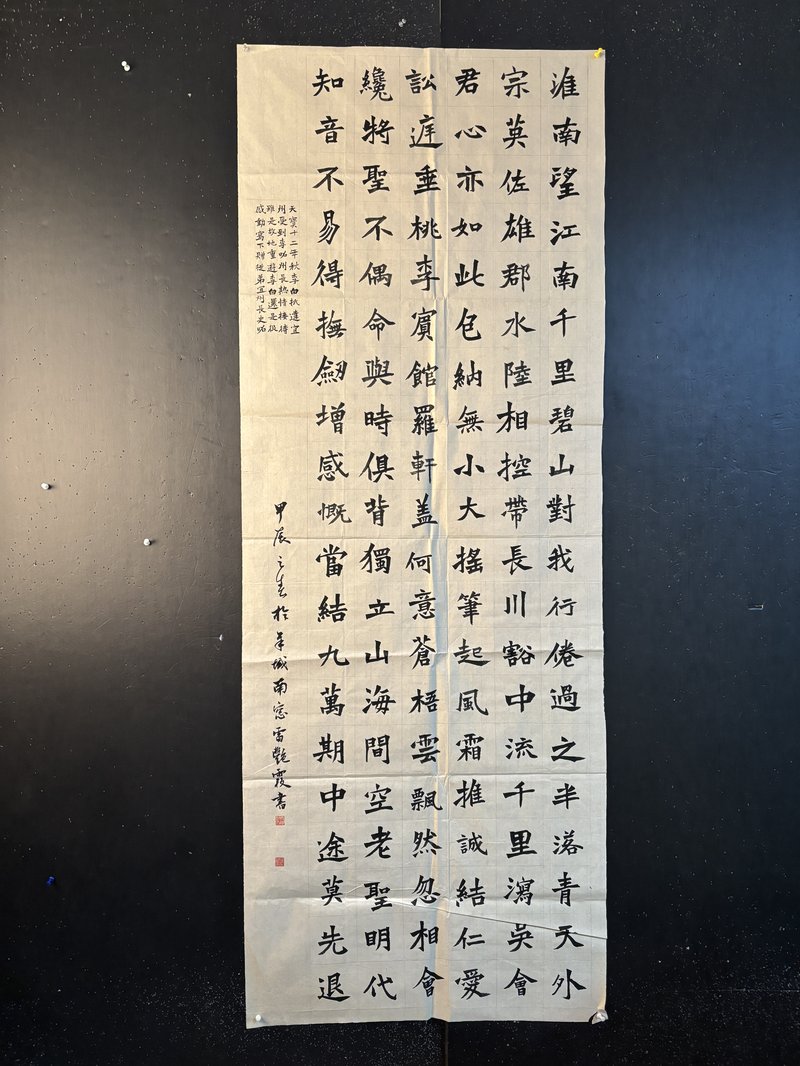 淮南望江南千里碧山對我行倦過之半落青天外
宗英佐雄郡水陸相控帶長川豁中流千里瀉吳會
君心亦如此包納無小大搖筆起風霜推誠結仁愛
訟庭垂桃李賓館羅軒盖何意蒼梧雲飄然忽相會
纔將聖不偶命與時俱背獨立山海間空老聖明代
知音不易得撫劒增感慨當結九萬期中途莫先退
天寶十二年秋李白抵達宣
州受到李昭州長熱情接待
雖是故地重遊李白還是很
感動寫下贈從弟宣州長史昭
甲辰之春於羊城南窓雷艷霞書